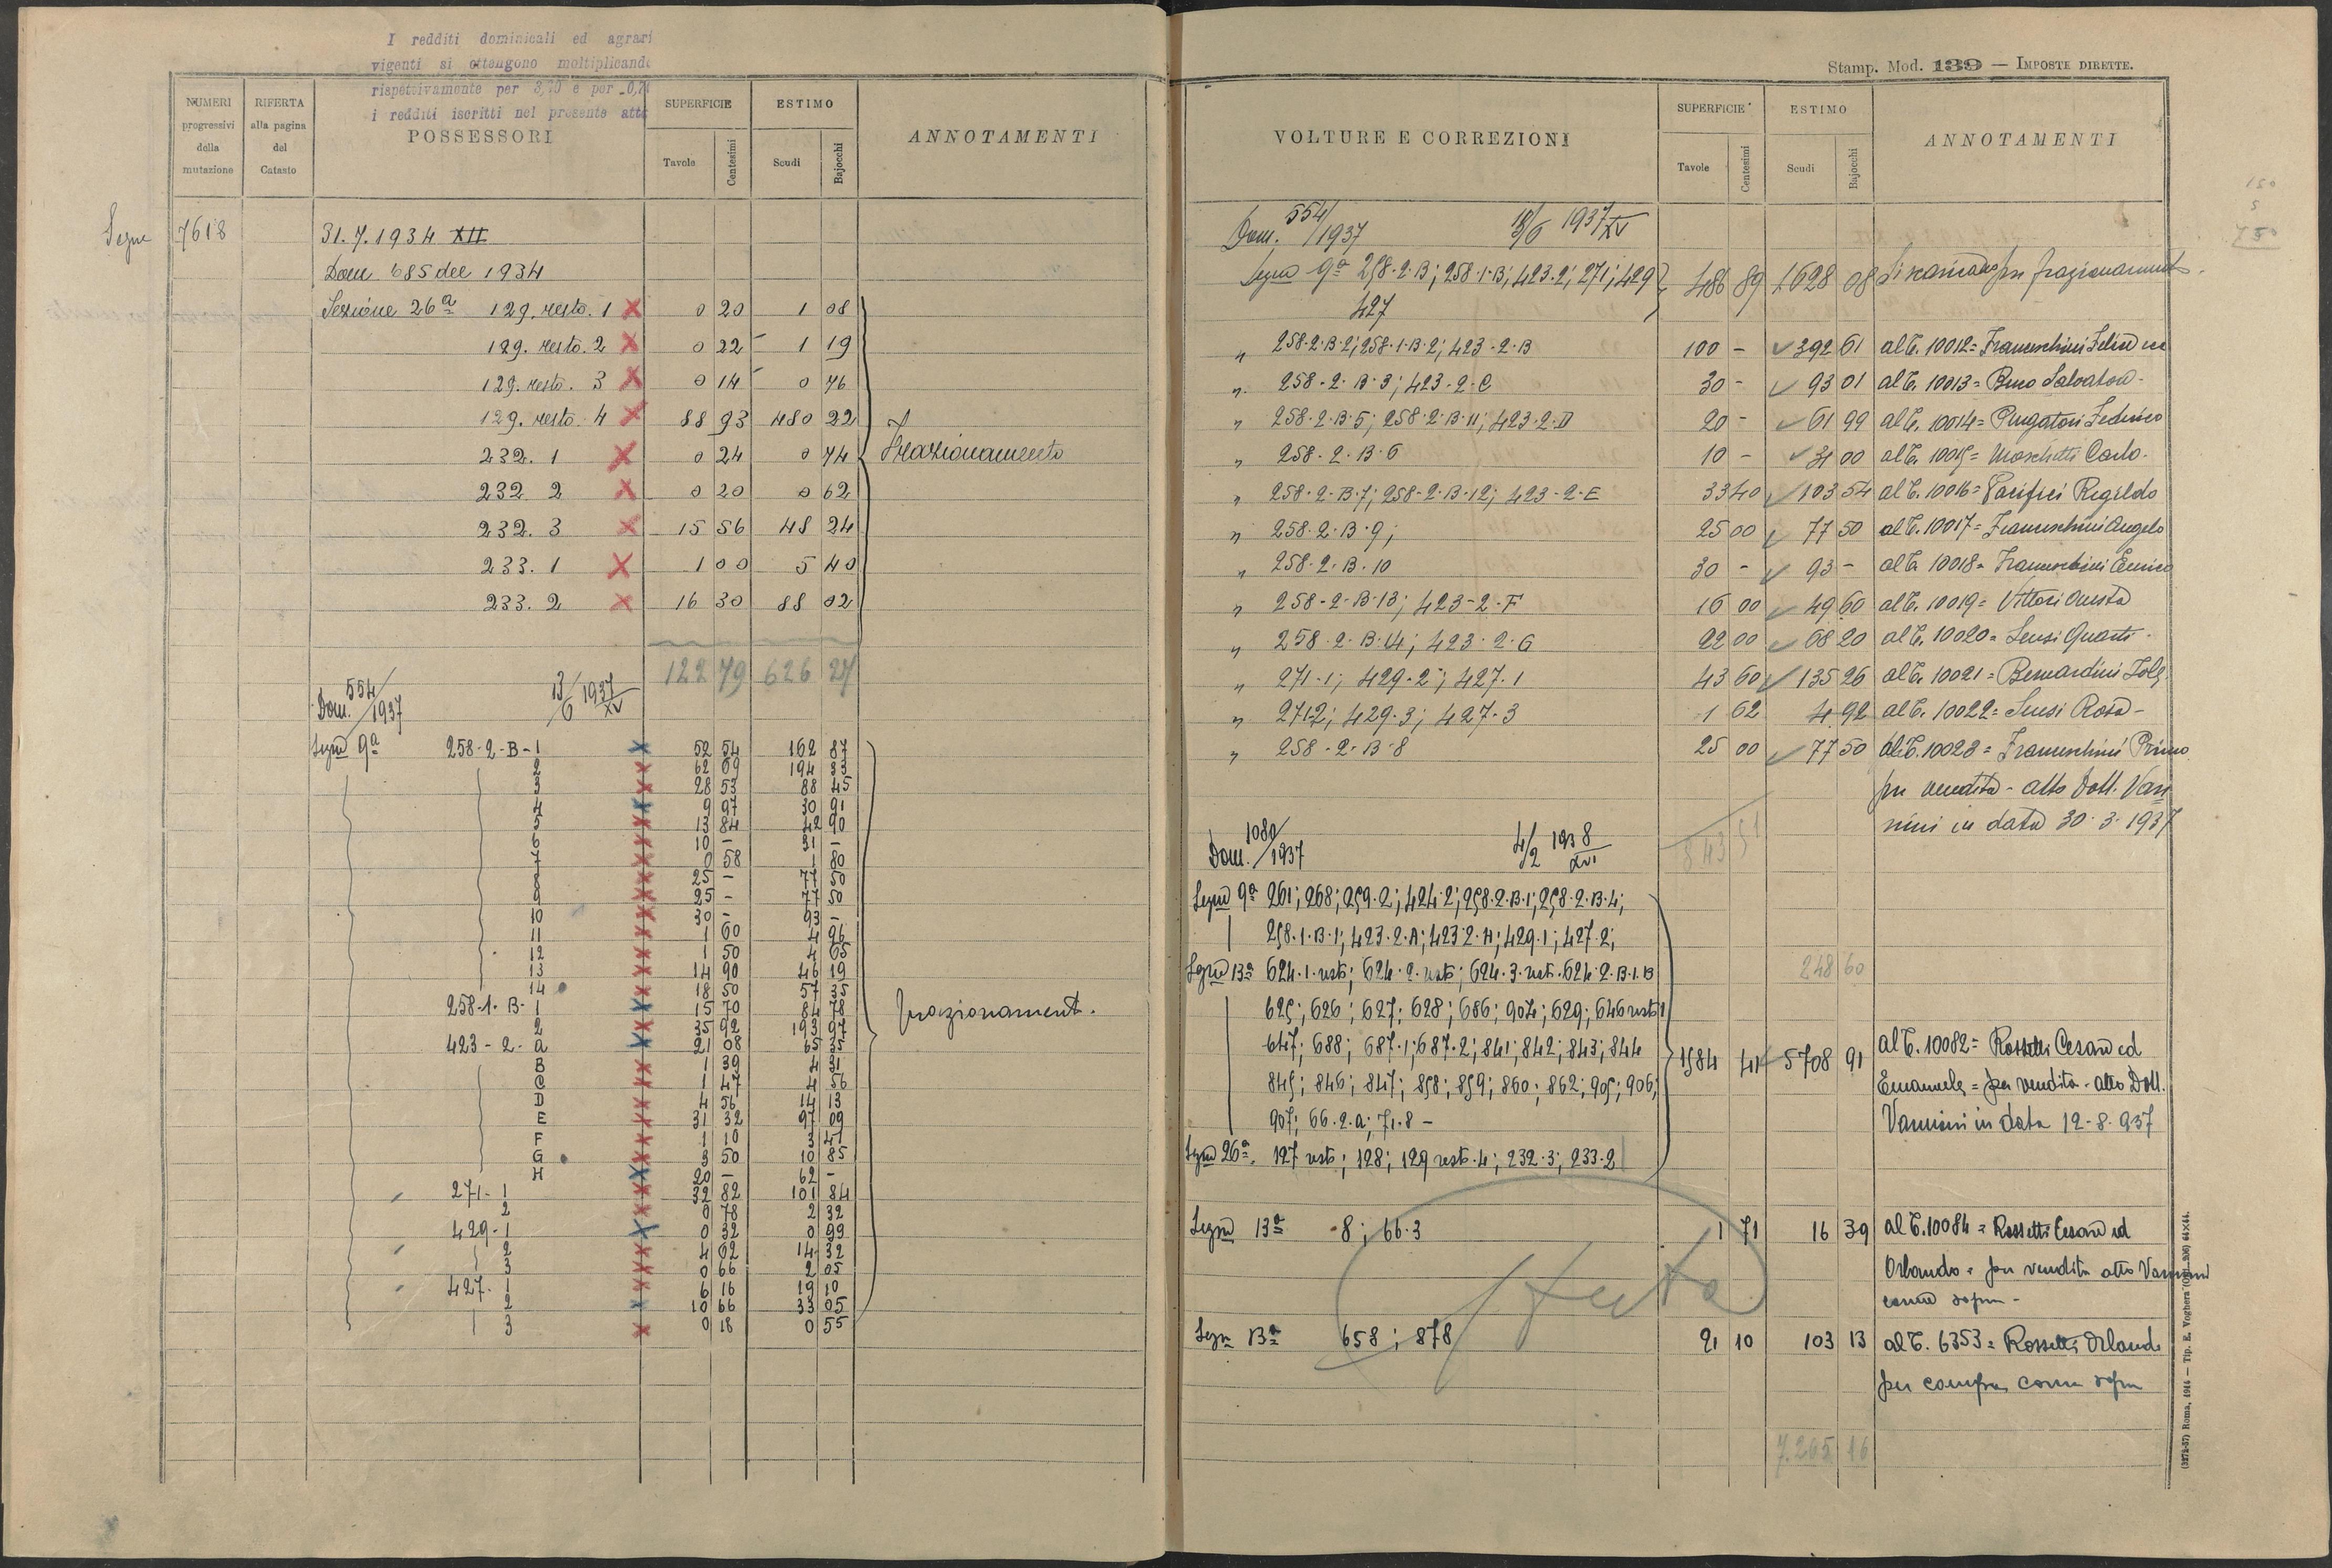 I redditi dominicali ed agrari
vigenti si ottengono moltiplicando
rispettivamente per 3,70 e per 0,7
i redditi iscritti nel presente atto
NUMERI progressivi della mutazione
RIFERTA alla pagina del Catasto
POSSESSORI
SUPERFICIE
Tavole Centesimi
ESTIMO
Scudi Bajocchi
ANNOTAMENTI
Segue 7618 31.7.1934 XII
Dom 685 del 1934
Sezione 26ª 129. resto. 1 X 0 20 1 08
129. resto. 2 X 0 22 1 19
129. resto. 3 X 0 14 0 76
129. resto. 4 X 88 93 480 22
232. 1 X 0 24 0 74 Frazionamento
232 2 X 0 20 0 62
232. 3 X 15 56 48 24
233. 1 X 1 00 5 40
233. 2 X 16 30 88 02
122 79 626 27
Dom. 554/1937 13/6 1937 XV
Segna 9ª 258-2-B-1 X 52 54 162 87
2 X 62 69 194 33
3 X 28 53 88 45
4 X 9 97 30 91
5 X 13 84 42 90
6 X 10 - 31 -
7 X 0 58 1 80
8 X 25 - 77 50
9 X 25 - 77 50
10 X 30 - 93 -
11 X 1 60 4 96
12 X 1 50 4 65
13 X 14 90 46 19
14 X 18 50 57 35
258-1. B- 1 X 15 70 84 78 frazionament.
2 X 35 92 193 97
423-2-a X 21 08 65 35
B X 1 39 4 31
C X 1 47 4 56
D X 4 56 14 13
E X 31 32 97 09
F X 1 10 3 41
G X 3 50 10 85
H X 20 - 62 -
271-1 X 32 82 101 84
2 X 0 78 2 32
429-1 X 0 32 0 99
2 X 4 62 14 32
3 X 0 66 2 05
427. 1 X 6 16 19 10
2 X 10 66 33 05
3 X 0 18 0 55
Stamp. Mod. 139 — IMPOSTE DIRETTE.
VOLTURE E CORREZIONI
SUPERFICIE
Tavole Centesimi
ESTIMO
Scudi Bajocchi
ANNOTAMENTI
150
5
750
Dom. 554/1937 18/6 1937 XV
Segna 9ª 258-2-B; 258-1-B; 423-2; 271; 429 486 89 1628 08 Si scaricano per frazionamento.
427
" 258-2-B-2; 258-1-B-2; 423-2-B 100 - 392 61 al C. 10012= Franceschini Felice
" 258-2-B-3; 423-2-C 30 - 93 01 al C. 10013= Salvatore
" 258-2-B-5; 258-2-B-11; 423-2-D 20 - 61 99 al C. 10014= Purgatori Federico
" 258-2-B-6 10 - 31 00 al C. 10015= Moschetti Carlo.
" 258-2-B-7; 258-2-B-12; 423-2-E 33 40 103 54 al C. 10016= Pacifici Regildo
" 258-2-B-9; 25 00 77 50 al C. 10017= Franceschini Angelo
" 258-2-B-10 30 - 93 - al C. 10018= Franceschini Enrico
" 258-2-B-13; 423-2-F 16 00 49 60 al C. 10019= Vittori
" 258-2-B-14; 423-2-G 22 00 68 20 al C. 10020= Sensi
" 271-1; 429-2; 427-1 43 60 135 26 al C. 10021= Bernardini
" 271-2; 429-3; 427-3 1 62 4 92 al C. 10022= Sensi Rosa-
" 258-2-B-8 25 00 77 50 al C. 10023= Franceschini Primo
per vendita - atto Dott. Van
nini in data 30-3-1937
843 51
Dom. 1080/1937 4/2 1938 XVI
Segna 9ª 261; 268; 259-2; 424-2; 258-2-B-1; 258-2-B-4;
258-1-B-1; 423-2-A; 423-2-H; 429-1; 427-2;
Segna 13ª 624-1-resto; 624-2-resto; 624-3-rest. 624-2-B-1-B 248 60
625; 626; 627; 628; 686; 904; 629; 646 resto 1
647; 688; 687-1; 687-2; 841; 842; 843; 844 1584 41 5708 91 al C. 10082= Rossetti Cesare ed
845; 846; 847; 858; 859; 860; 862; 905; 906; Emanuele = per vendita - atto Dott.
907; 66-2-a; 71-8 - Vannini in data 12-8-937
Segna 26ª. 127 resto; 128; 129 resto-4; 232-3; 233-2
Segna 13ª -8; 66-3 1 71 16 39 al C. 10084= Rossetti Cesare ed
Orlando = per vendita atto Vannini
come sopra -
Segna 13ª 658; 878 21 10 103 13 al C. 6353= Rossetti Orlando
per compra come sopra
7.265 16
(3274-37) Roma, 1944 — Tip. E. Voghera